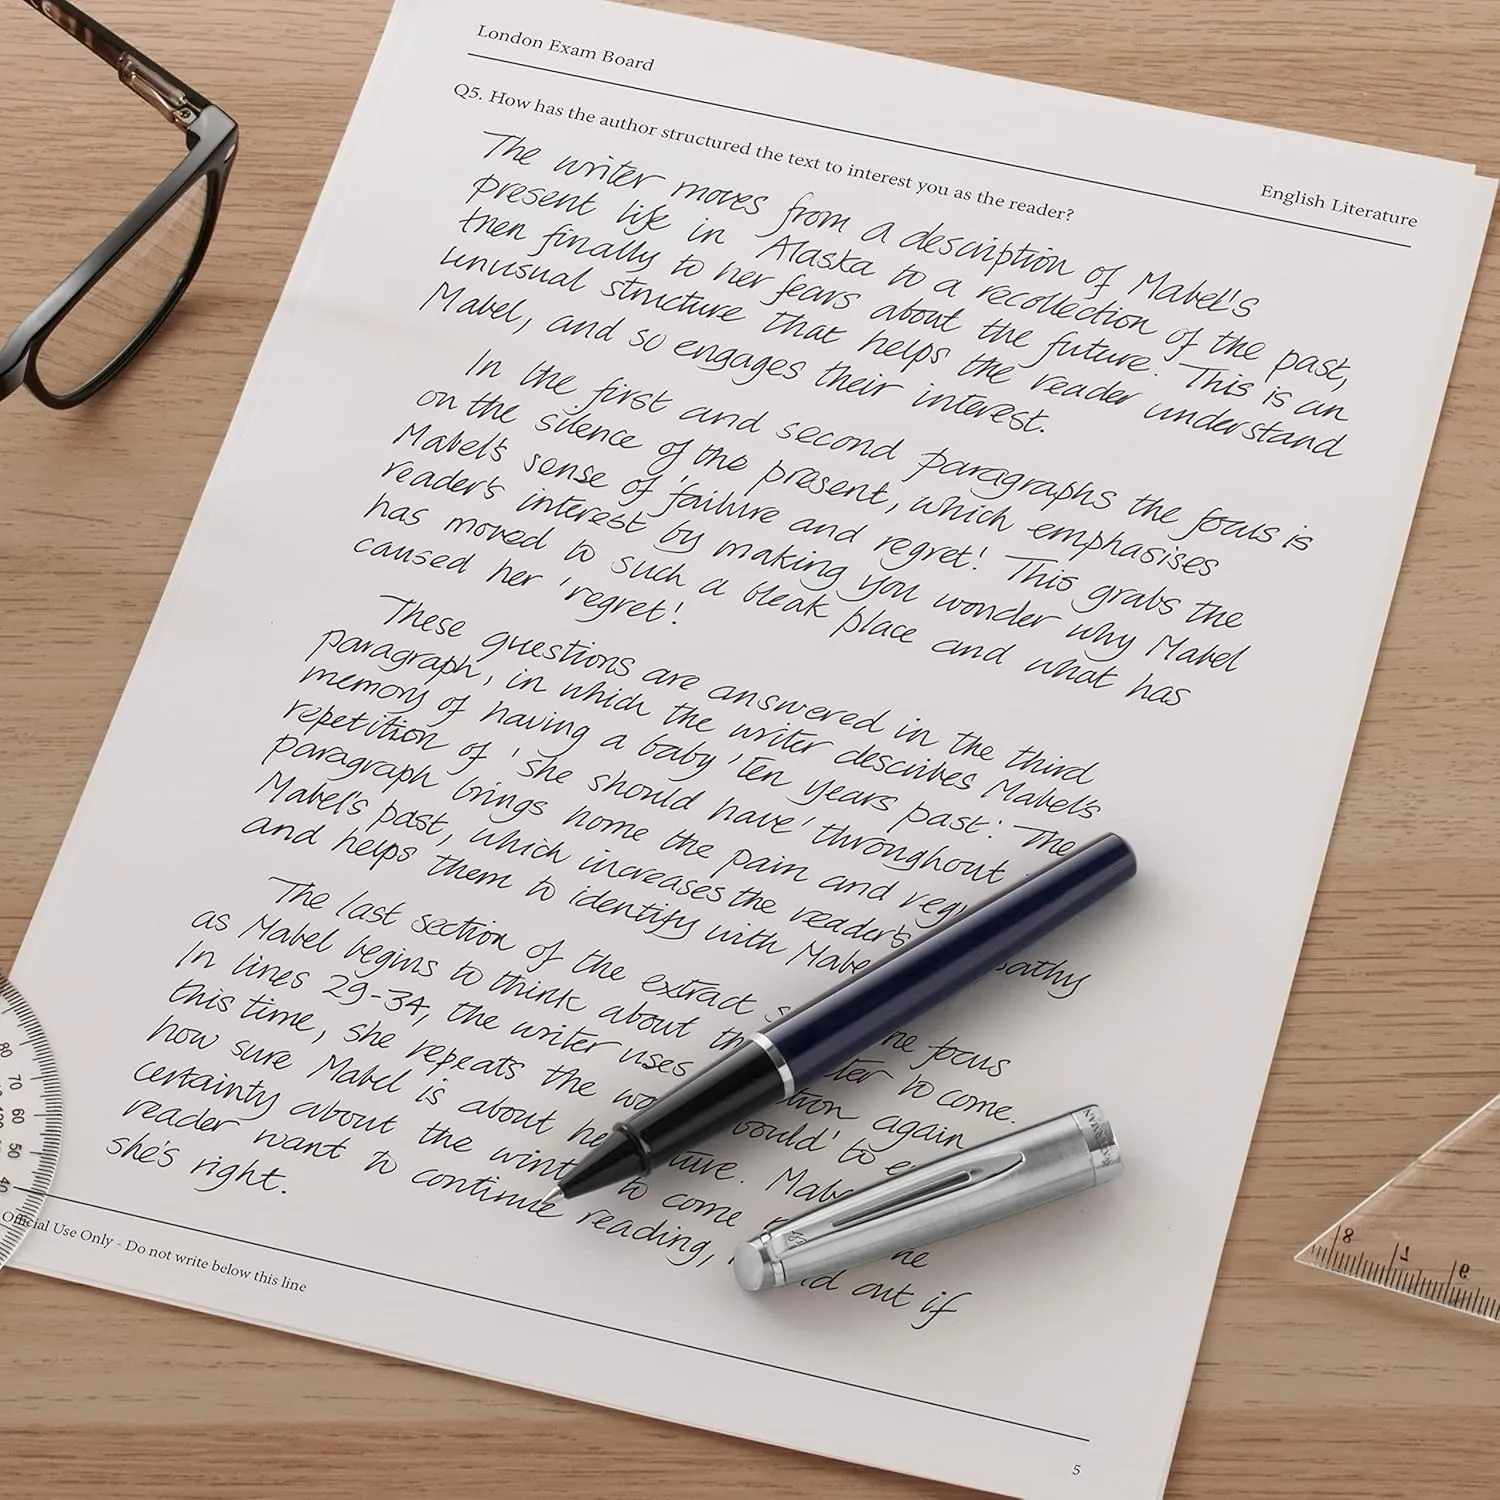 London Exam Board
English Literature
Q5. How has the author structured the text to interest you as the reader?
The writer moves from a description of Mabel's
present life in Alaska to a recollection of the past,
then finally to her fears about the future. This is an
unusual structure that helps the reader understand
Mabel, and so engages their interest.
In the first and second paragraphs the focus is
on the silence of the present, which emphasises
Mabel's sense of 'failure and regret! This grabs the
reader's interest by making you wonder why Mabel
has moved to such a bleak place and what has
caused her 'regret!
These questions are answered in the third
paragraph, in which the writer describes Mabel's
memory of having a baby 'ten years past'. The
repetition of 'she should have' throughout
paragraph brings home the pain and
Mabel's past, which increases the reader's
and helps them to identify with
The last section of the extract
as Mabel begins to think about focus
In lines 29-34, the writer uses to come.
this time, she repeats the again
how sure Mabel is about 'could' to
certainty about the
reader want to continue reading, to come
she's right. out if
Official Use Only - Do not write below this line
5
WATERMAN
80
70
60
50
40
8
7
6